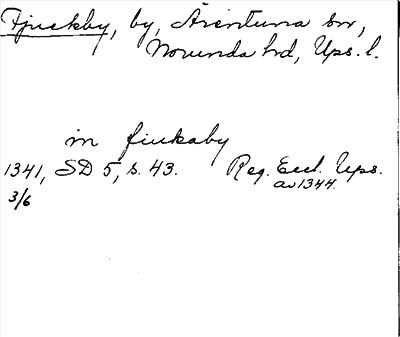 Fjuckby, by, Ärentuna sn,
Norunda hd, Ups. l.
in fiukaby
1341, SD 5, s. 43. Reg. Eccl. Ups.
3/6 av 1344.